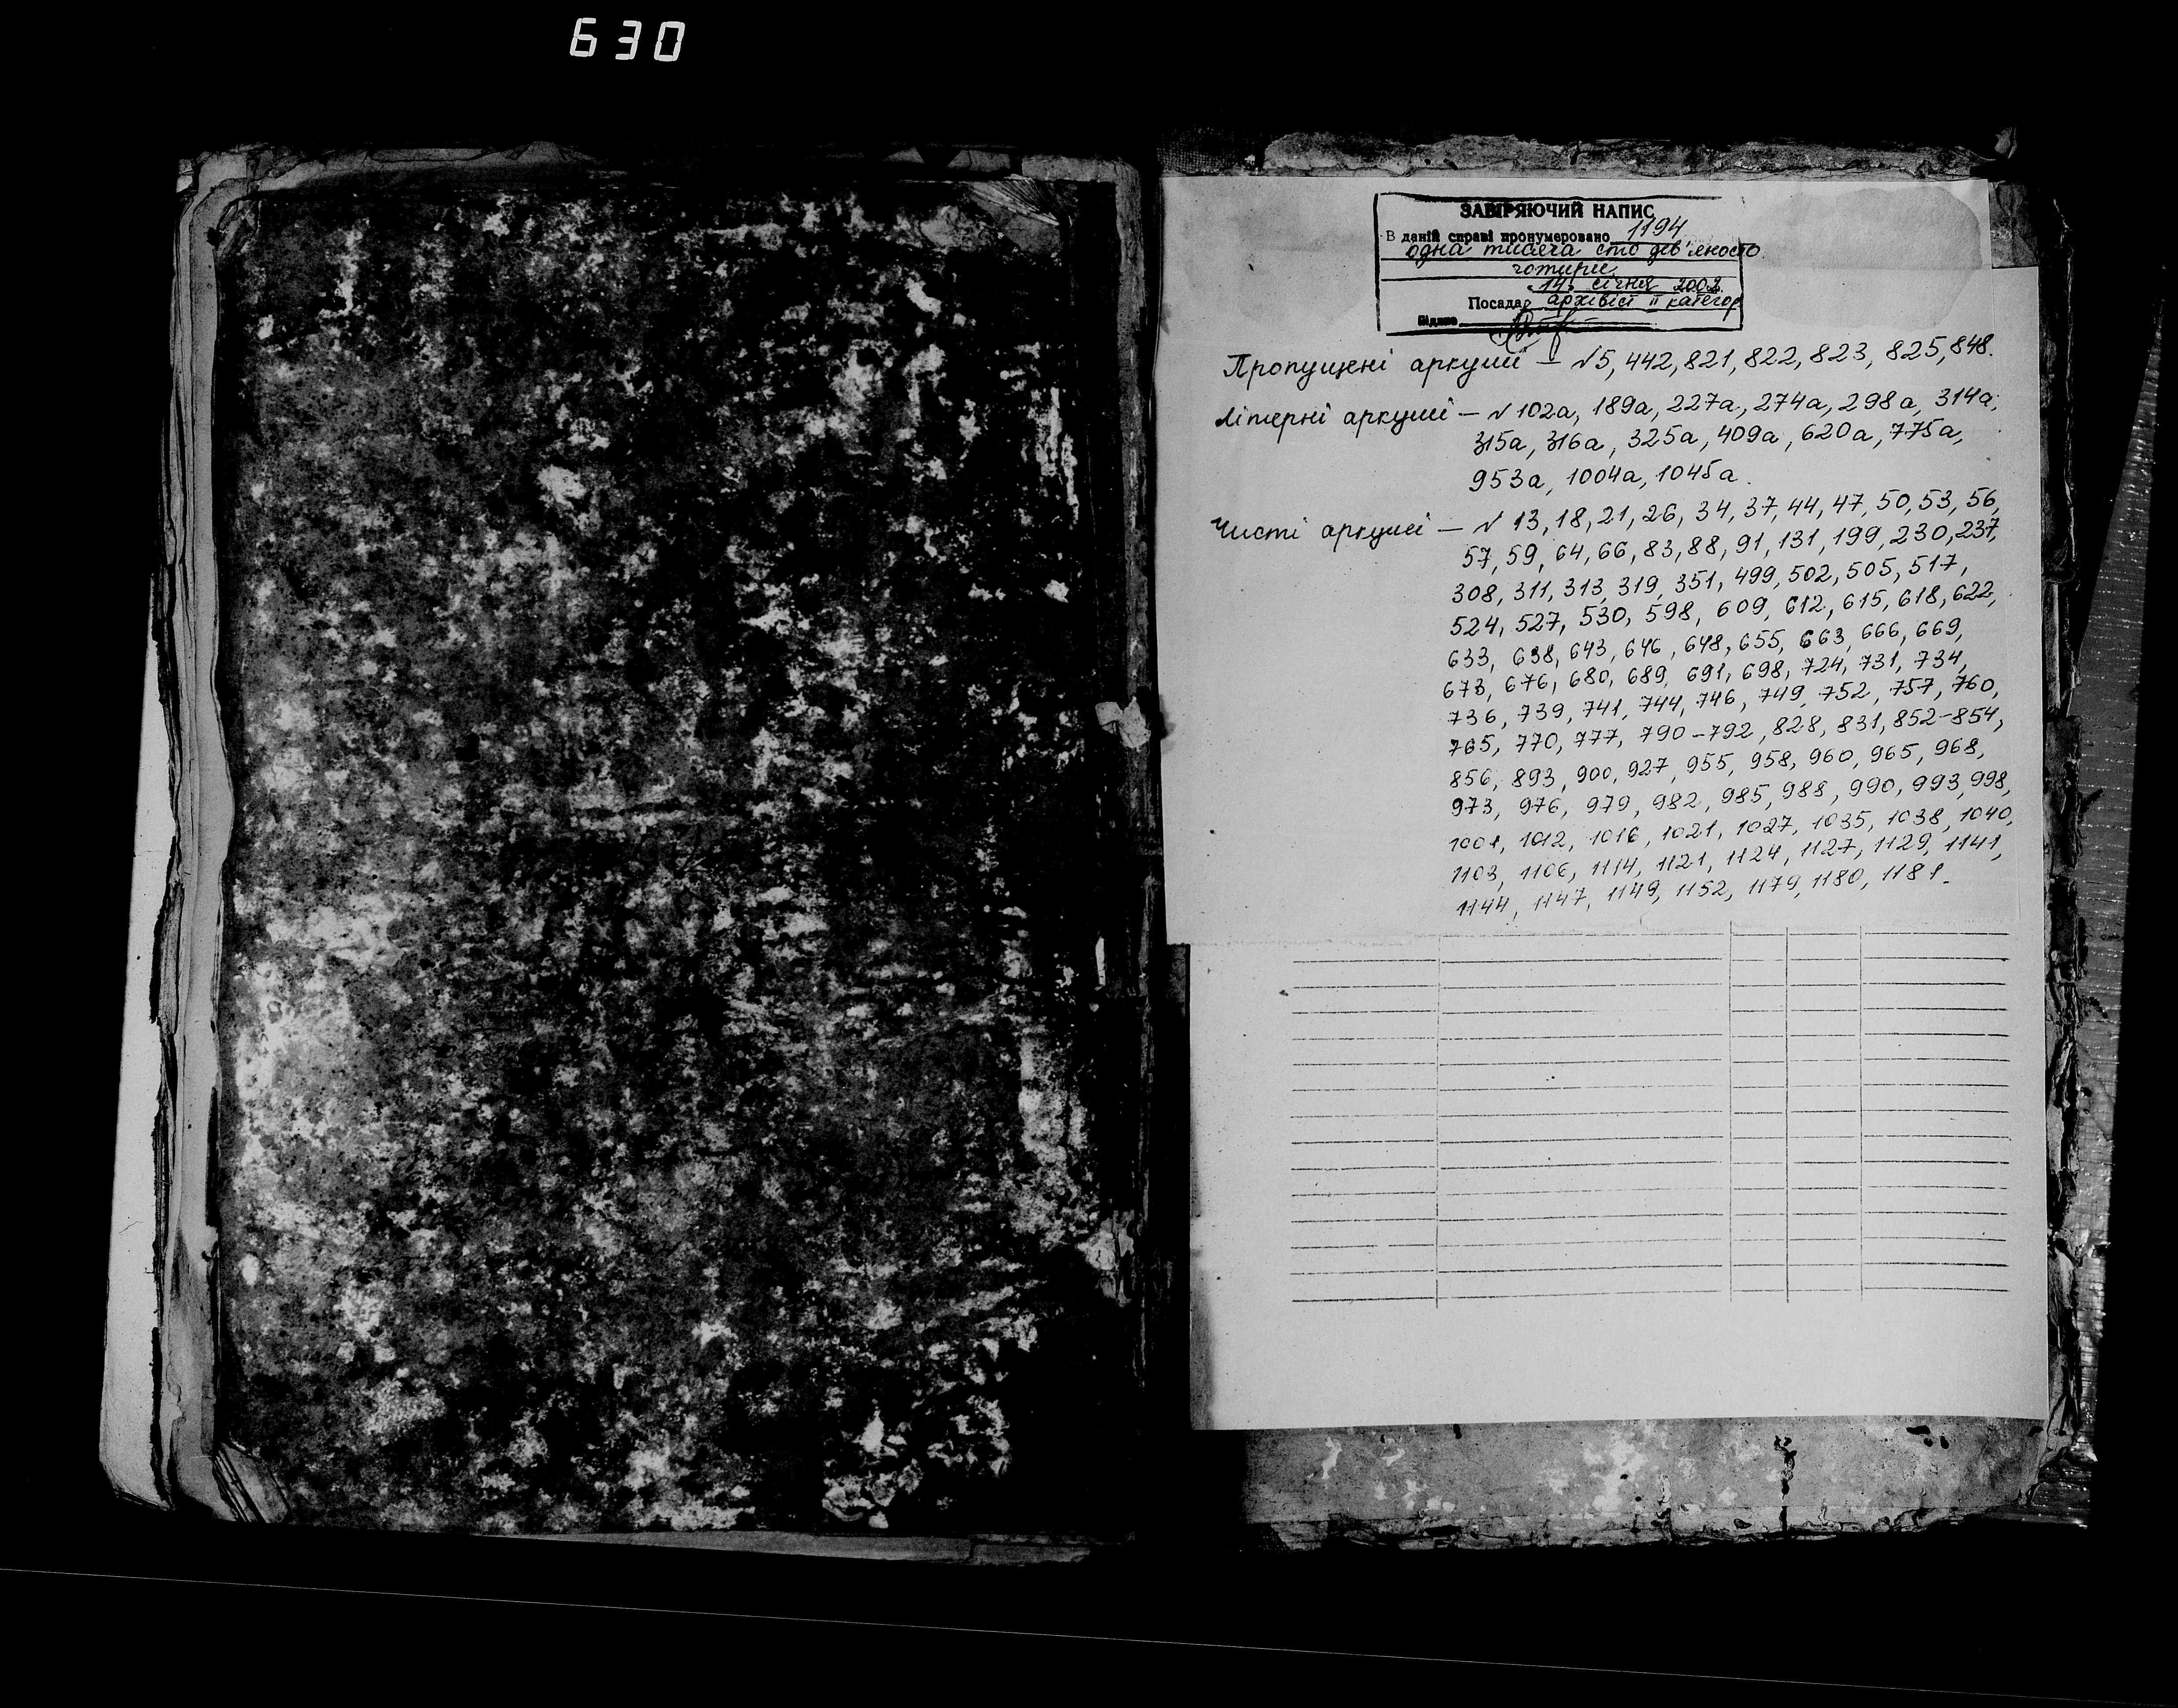 630
ЗАВІРЯЮЧИЙ НАПИС
В даній справі пронумеровано 1194
одна тисяча сто дев'яносто
чотири
14 січня 2002.
Посада архівіст II категор
Підпис
Пропущені аркуші — №5, 442, 821, 822, 823, 825, 848.
Літерні аркуші — № 102а, 189а, 227а, 274а, 298а, 314а,
315а, 316а, 325а, 409а, 620а, 775а,
953а, 1004а, 1045а.
Чисті аркуші — № 13, 18, 21, 26, 34, 37, 44, 47, 50, 53, 56,
57, 59, 64, 66, 83, 88, 91, 131, 199, 230, 237,
308, 311, 313, 319, 351, 499, 502, 505, 517,
524, 527, 530, 598, 609, 612, 615, 618, 622,
633, 638, 643, 646, 648, 655, 663, 666, 669,
673, 676, 680, 689, 691, 698, 724, 731, 734,
736, 739, 741, 744, 746, 749, 752, 757, 760,
765, 770, 777, 790-792, 828, 831, 852-854,
856, 893, 900, 927, 955, 958, 960, 965, 968,
973, 976, 979, 982, 985, 988, 990, 993, 998,
1001, 1012, 1016, 1021, 1027, 1035, 1038, 1040,
1103, 1106, 1114, 1121, 1124, 1127, 1129, 1141,
1144, 1147, 1149, 1152, 1179, 1180, 1181.